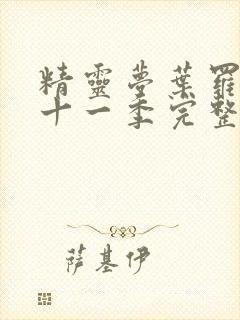 精靈夢葉羅
十一季完整
薩基伊